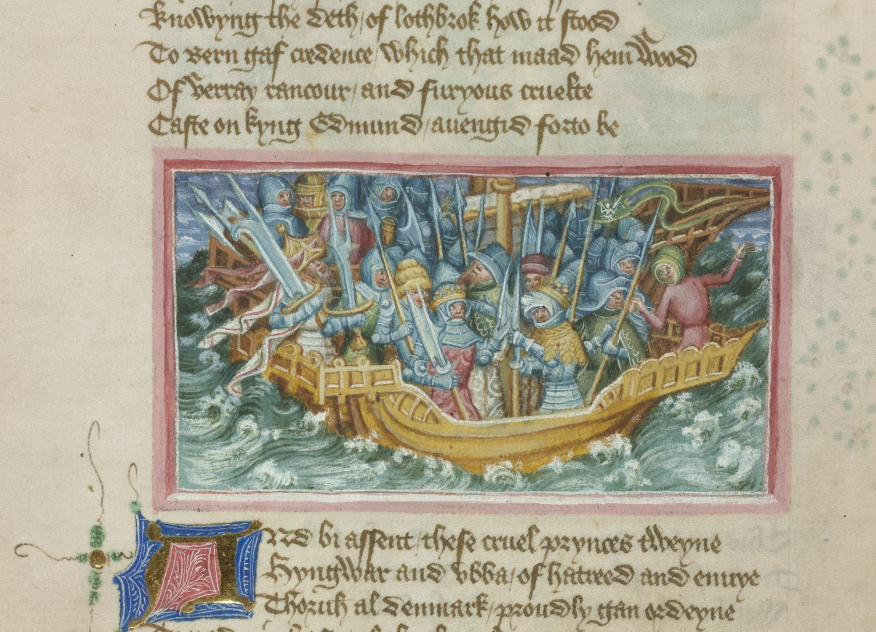 knowyng the deth / of lothbrok how it stood
To Bern gaf credence / which that maad hem wood
Of verray rancour / and furyous cruelte
Caste on kyng Edmund / auengid forto be
And bi assent / these cruel prynces tweyne
Hyngwar and vbba / of hatreed and envye
Thoruh al denmark / proudly gan ordeyne